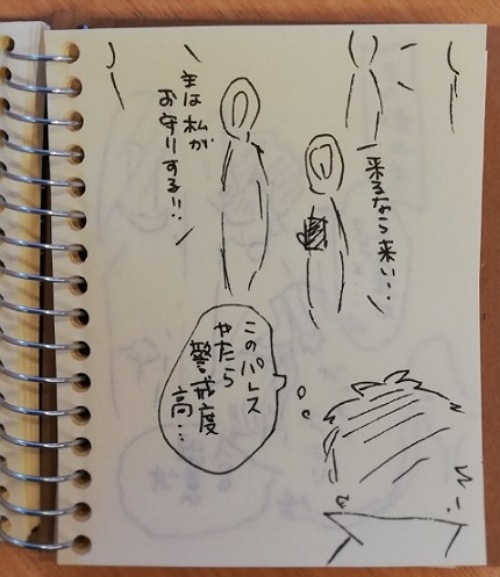 来るなら来い…
主は私が
お守りする!!
このパレス
やたら
警戒度
高…